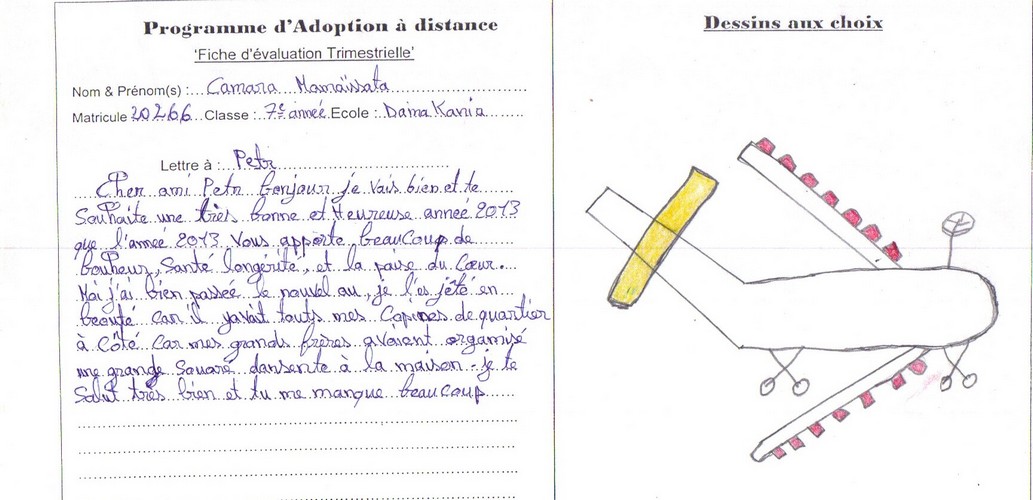 Programme d'Adoption à distance
'Fiche d'évaluation Trimestrielle'
Nom & Prénom(s) :... Camara Mamaïssata
Matricule 20266 Classe : 7e année Ecole : Daina Kania
Lettre à : Petr
Cher ami Petr bonjour je vais bien et te
Souhaite une très bonne et Heureuse année 2013
que l'année 2013 Vous apporte beauCoup de
bonheur, Santé longérité, et la paise du Cœur...
Moi j'ai bien passée le nouvel au, je l'es fêté en
beauté car il yavait touts mes Copines de quartier
à Côté Car mes grands frères avaient organisé
une grande Souaré dansente à la maison - je te
Salut très bien et tu me manque beauCoup
Dessins aux choix